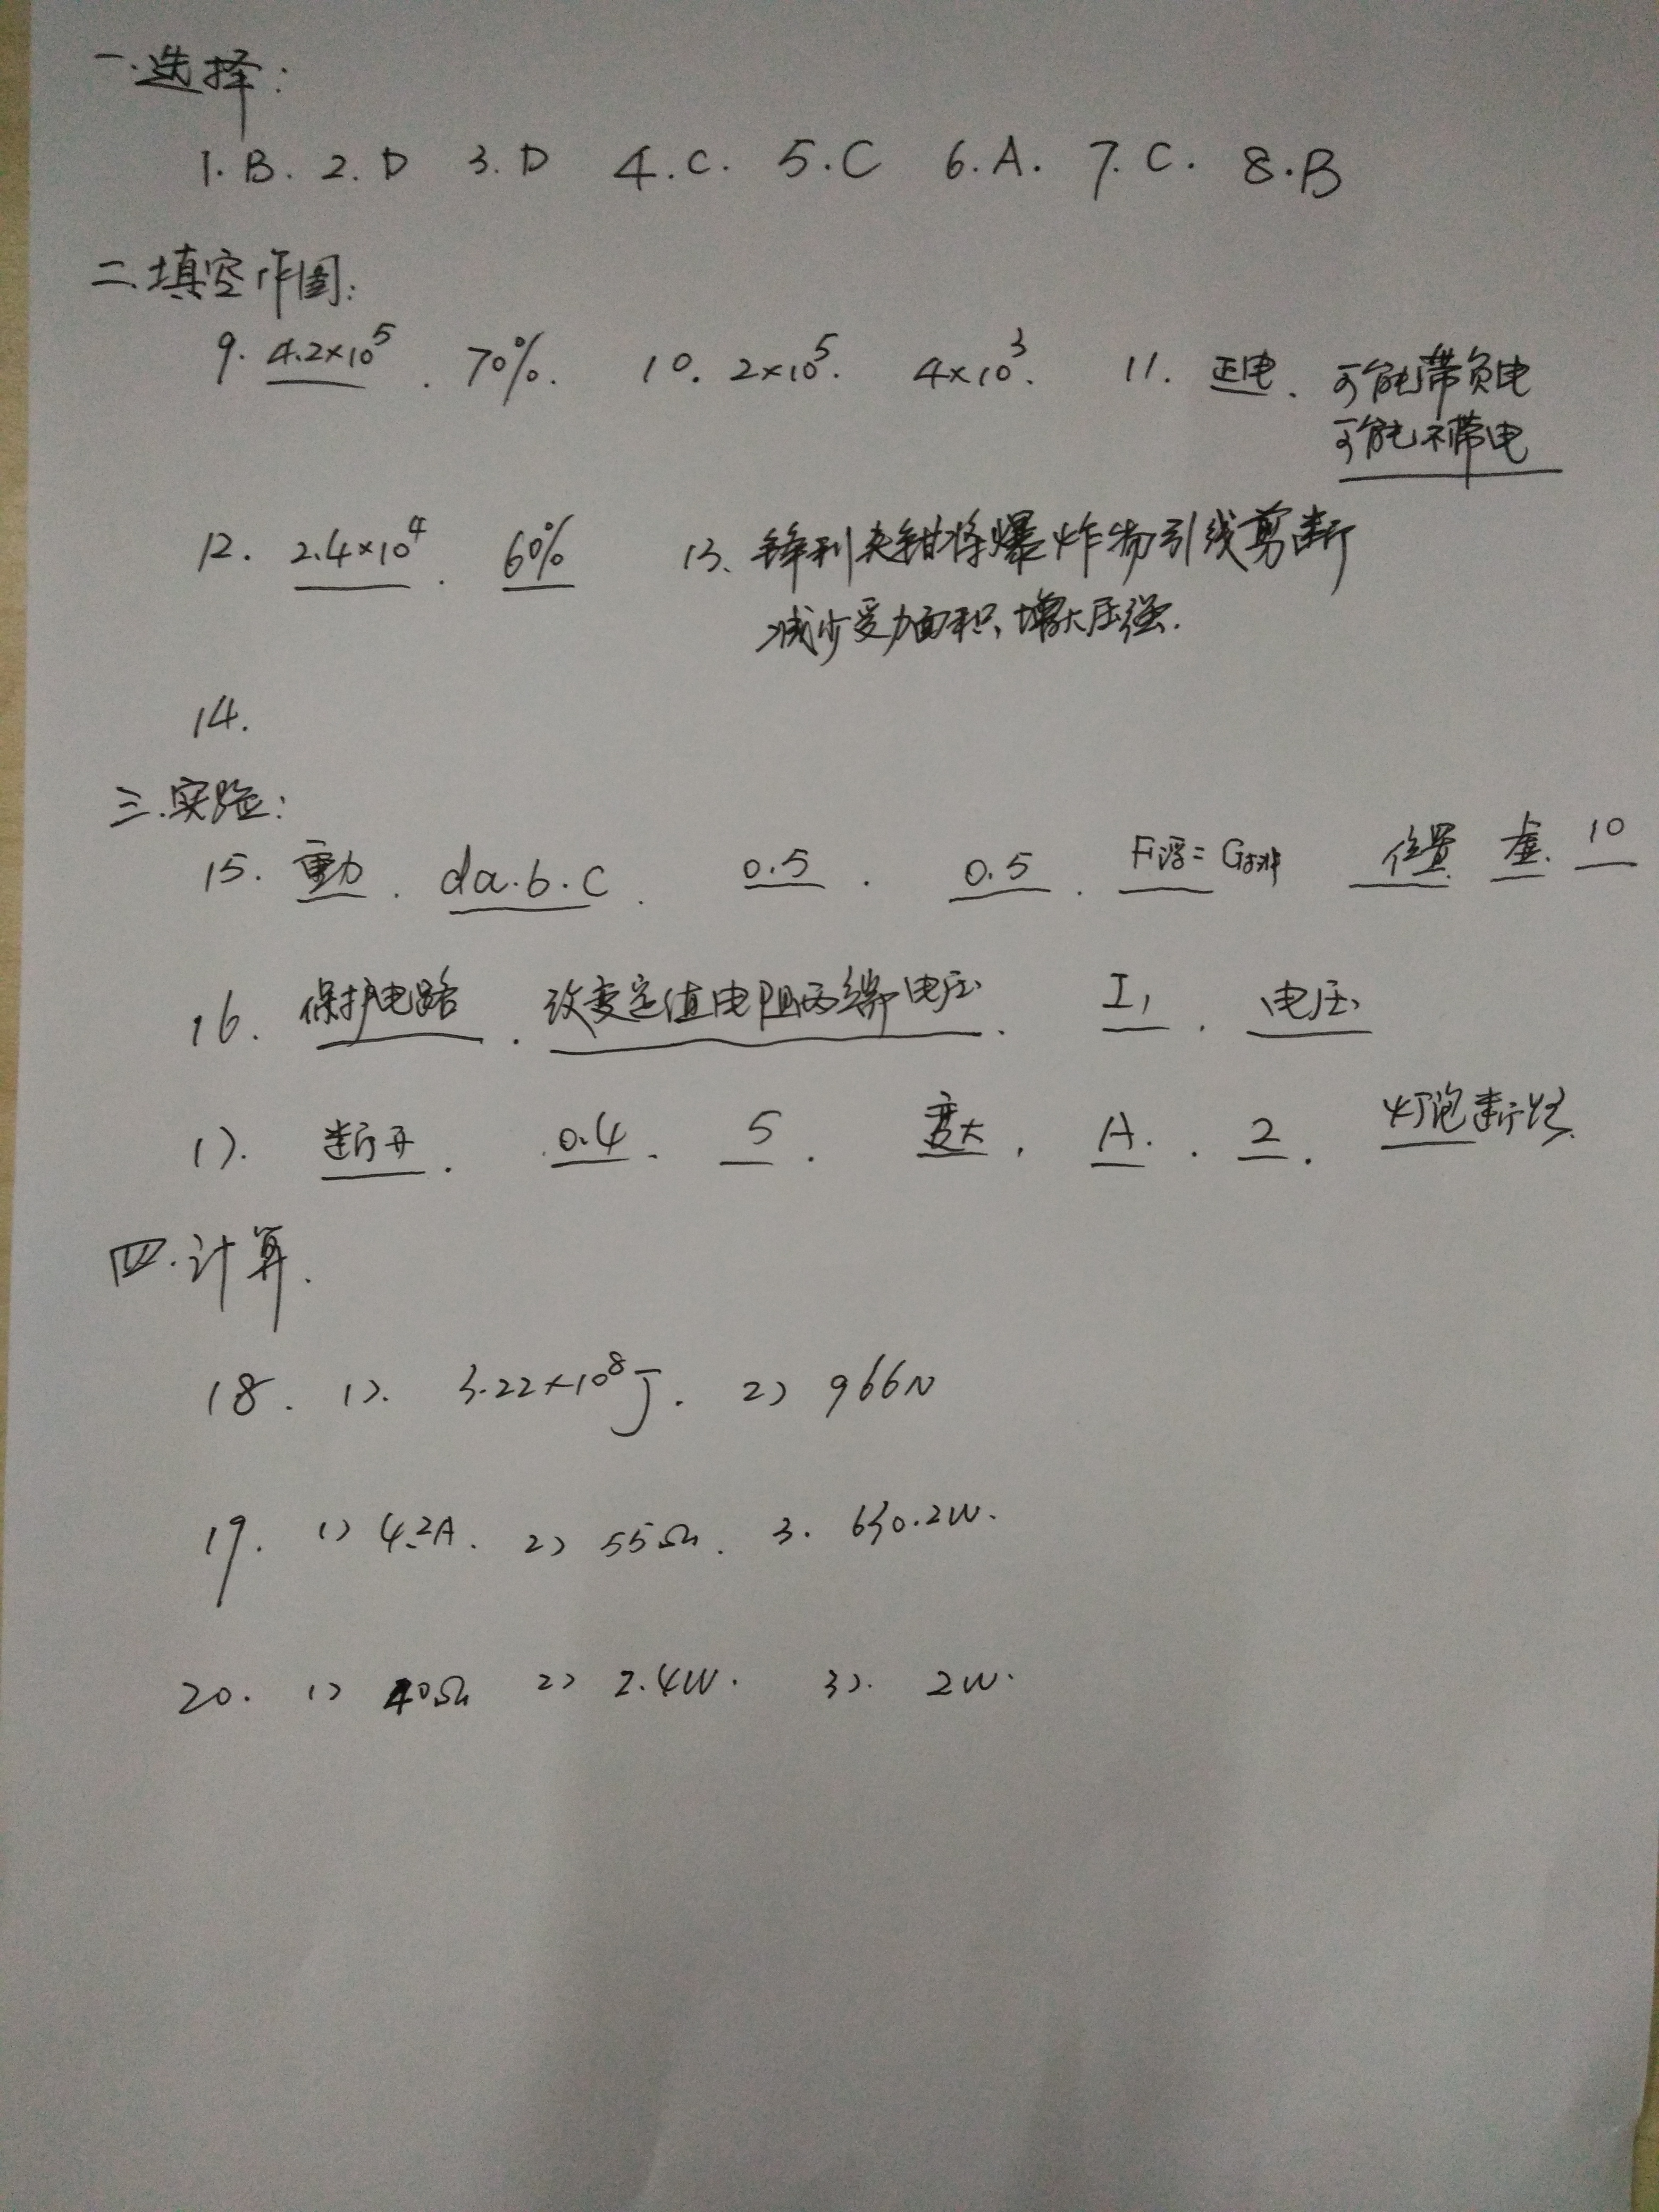 一.选择:
1.B. 2.D 3.D 4.C. 5.C 6.A. 7.C. 8.B
二.填空作图:
9. 4.2×10⁵. 70%. 10. 2×10⁵. 4×10³. 11. 正电. 可能带负电
可能不带电
12. 2.4×10⁴. 60% 13. 锋利夹钳将爆炸物引线剪断
减少受力面积,增大压强.
14.
三.实验:
15. 重力. da.b.c. 0.5. 0.5. F浮=G排 位置. 虚. 10
16. 保护电路. 改变定值电阻两端电压. I₁. 电压
17. 断开. 0.4. 5. 变大. A. 2. 灯泡断路.
四.计算.
18. 1). 3.22×10⁸J. 2) 966N
19. 1) 4.2A. 2) 55Ω. 3. 630.2W.
20. 1) 40Ω 2) 2.4W. 3). 2W.